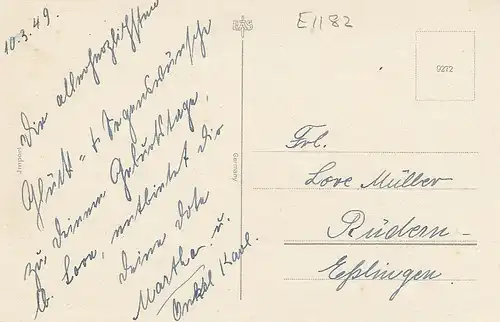 10.3.49.
Die allerherzlichsten
Glück- & Segenswünsche
zu Deinem Geburtstage,
lb. Lore, entbietet Dir
Deine Dote
Martha u.
Onkel Karl.
Import
EAS
Germany
E1182
9272
Frl.
Lore Müller
Rüdern-
Eßlingen.